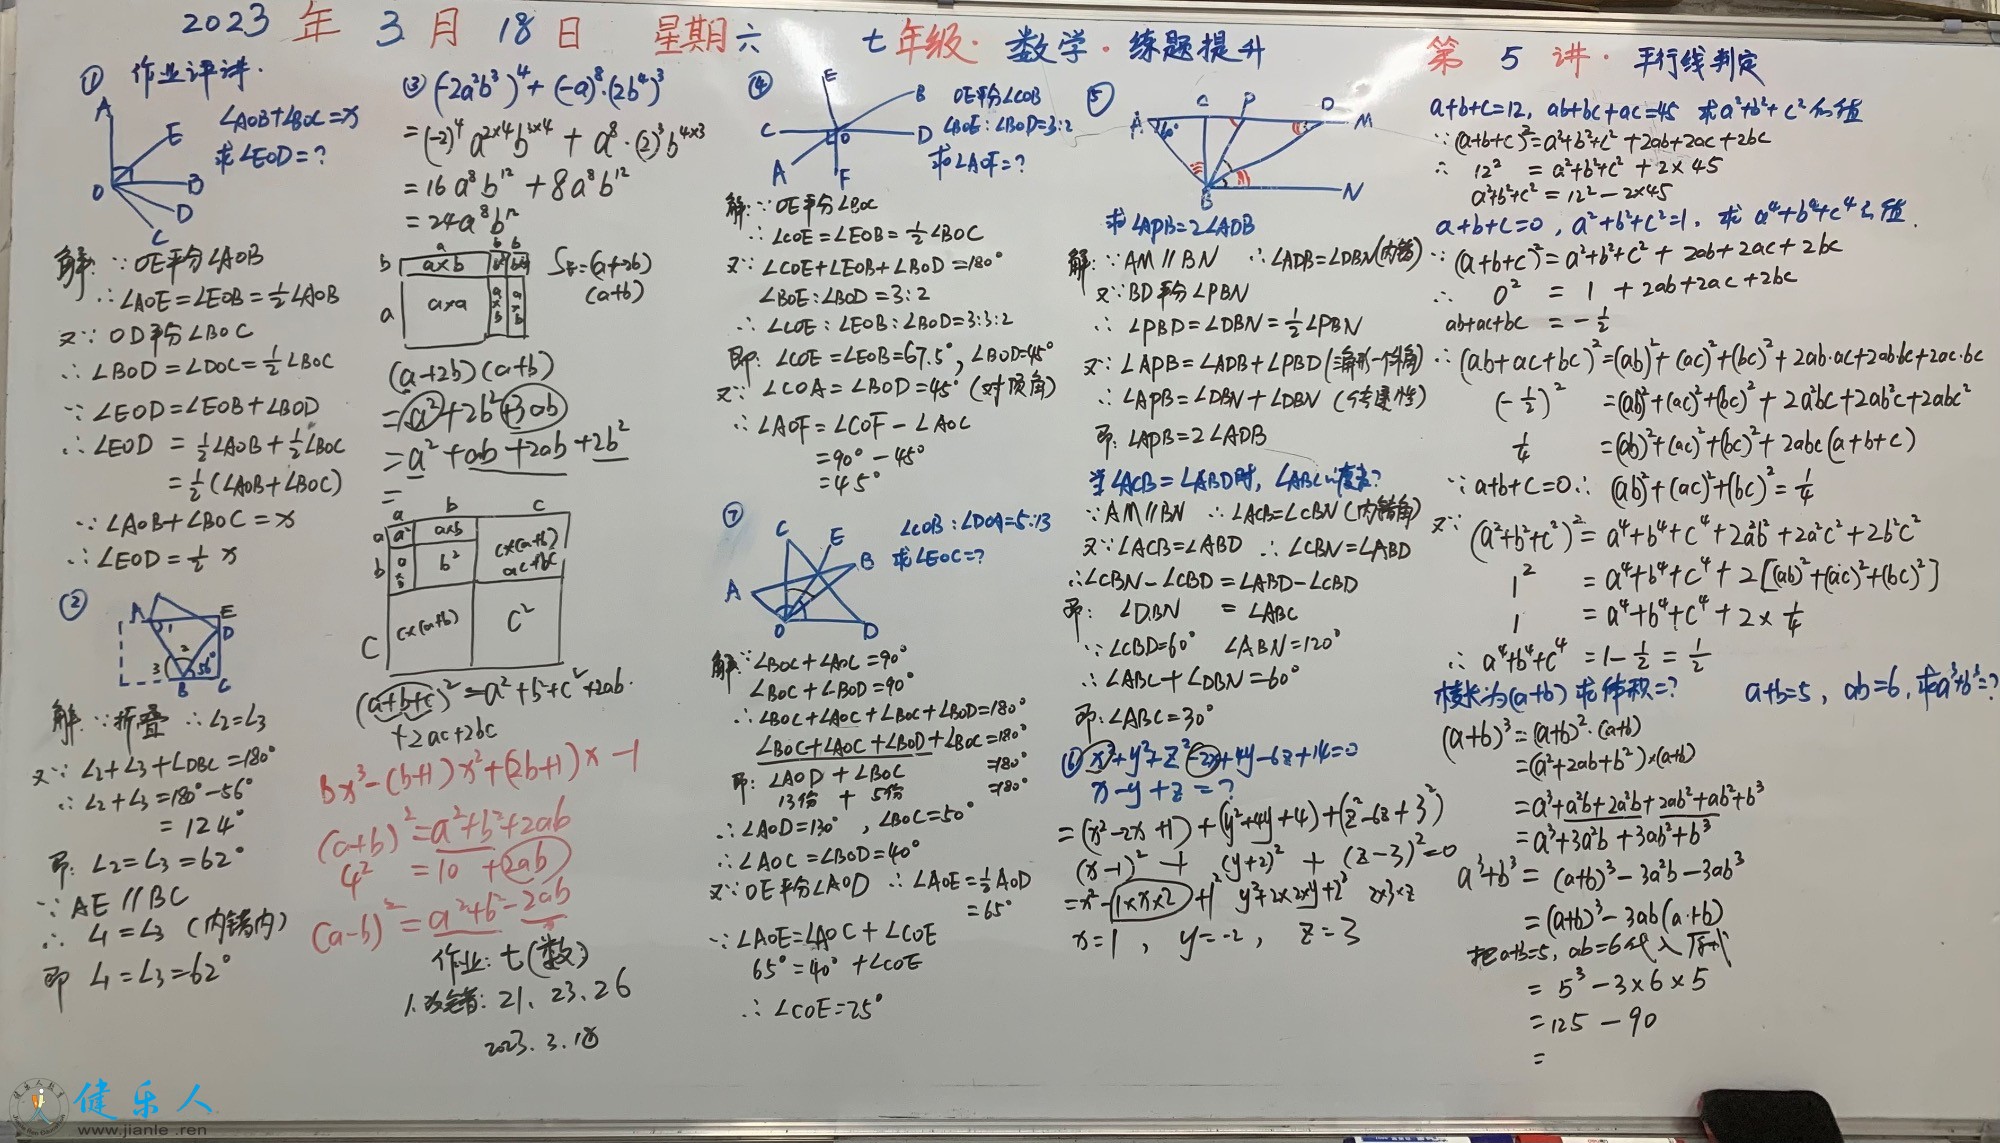 2023 年 3 月 18 日 星期六 七年级·数学·练题提升 第 5 讲·平行线判定
① 作业评讲.
A
E
B
D
C
O
∠AOB+∠BOC=x
求∠EOD=?
解:∵OE平分∠AOB
∴∠AOE=∠EOB=½∠AOB
又∵OD平分∠BOC
∴∠BOD=∠DOC=½∠BOC
∵∠EOD=∠EOB+∠BOD
∴∠EOD=½∠AOB+½∠BOC
=½(∠AOB+∠BOC)
∵∠AOB+∠BOC=x
∴∠EOD=½x
②
A
E
D
1
2
3
56°
B
C
解:∵折叠 ∴∠2=∠3
又∵∠2+∠3+∠DBC=180°
∴∠2+∠3=180°-56°
=124°
即:∠2=∠3=62°
∵AE//BC
∴∠1=∠3(内错内)
即∠1=∠3=62°
③(-2a²b³)⁴+(-a)⁸·(2b⁴)³
=(-2)⁴a²ˣ⁴b³ˣ⁴+a⁸·(2)³b⁴ˣ³
=16a⁸b¹²+8a⁸b¹²
=24a⁸b¹²
a b b
b a×b b² b²
a a×a a×b a×b
S=(a+2b)
(a+b)
(a+2b)(a+b)
=a²+2b²+3ab
=a²+ab+2ab+2b²
=
a b c
a a² a×b c×(a+b)
ac+bc
b a×b b²
c c×(a+b) c²
(a+b+c)²=a²+b²+c²+2ab.
+2ac+2bc
bx³-(b+1)x²+(2b+1)x-1
(a+b)²=a²+b²+2ab
4²=10+2ab
(a-b)²=a²+b²-2ab
作业:七(数)
1.改错:21、23、26
2023.3.18
④
E
B
C
O
D
A
F
OE平分∠COB
∠BOE:∠BOD=3:2
求∠AOF=?
解:∵OE平分∠BOC
∴∠COE=∠EOB=½∠BOC
又∵∠COE+∠EOB+∠BOD=180°
∠BOE:∠BOD=3:2
∴∠COE:∠EOB:∠BOD=3:3:2
即:∠COE=∠EOB=67.5°,∠BOD=45°
又∵∠COA=∠BOD=45°(对顶角)
∴∠AOF=∠COF-∠AOC
=90°-45°
=45°
⑦
C
E
B
A
O
D
∠COB:∠DOA=5:13
求∠EOC=?
解:∵∠BOC+∠AOC=90°
∠BOC+∠BOD=90°
∴∠BOC+∠AOC+∠BOC+∠BOD=180°
∠BOC+∠AOC+∠BOD+∠BOC=180°
即:∠AOD+∠BOC=180°
13份+5份=180°
∴∠AOD=130°,∠BOC=50°
∴∠AOC=∠BOD=40°
又∵OE平分∠AOD ∴∠AOE=½AOD
=65°
∵∠AOE=∠AOC+∠COE
65°=40°+∠COE
∴∠COE=25°
⑤
A
C
P
D
M
60°
B
N
求∠APB=2∠ADB
解:∵AM//BN ∴∠ADB=∠DBN(内错)
又∵BD平分∠PBN
∴∠PBD=∠DBN=½∠PBN
又∵∠APB=∠ADB+∠PBD(三角形一个外角)
∴∠APB=∠DBN+∠DBN(传递性)
即:∠APB=2∠ADB
当∠ACB=∠ABD时,∠ABC的度数?
∵AM//BN ∴∠ACB=∠CBN(内错角)
又∵∠ACB=∠ABD ∴∠CBN=∠ABD
∴∠CBN-∠CBD=∠ABD-∠CBD
即:∠DBN=∠ABC
∵∠CBD=60° ∠ABN=120°
∴∠ABC+∠DBN=60°
即:∠ABC=30°
⑥x²+y²+z²-2x+4y-6z+14=0
x-y+z=?
=(x²-2x+1)+(y²+4y+4)+(z²-6z+3²)
(x-1)²+(y+2)²+(z-3)²=0
=x²-1×x×2+1² y²+2×2×y+2² 2×3×z
x=1, y=-2, z=3
a+b+c=12, ab+bc+ac=45 求a²+b²+c²的值
∵(a+b+c)²=a²+b²+c²+2ab+2ac+2bc
∴12²=a²+b²+c²+2×45
a²+b²+c²=12²-2×45
a+b+c=0, a²+b²+c²=1, 求a⁴+b⁴+c⁴的值.
∵(a+b+c)²=a²+b²+c²+2ab+2ac+2bc
∴0²=1+2ab+2ac+2bc
ab+ac+bc=-½
∴(ab+ac+bc)²=(ab)²+(ac)²+(bc)²+2ab·ac+2ab·bc+2ac·bc
(-½)²=(ab)²+(ac)²+(bc)²+2a²bc+2ab²c+2abc²
¼=(ab)²+(ac)²+(bc)²+2abc(a+b+c)
∵a+b+c=0∴(ab)²+(ac)²+(bc)²=¼
又∵(a²+b²+c²)²=a⁴+b⁴+c⁴+2a²b²+2a²c²+2b²c²
1²=a⁴+b⁴+c⁴+2[(ab)²+(ac)²+(bc)²]
1=a⁴+b⁴+c⁴+2×¼
∴a⁴+b⁴+c⁴=1-½=½
棱长为(a+b)求体积=? a+b=5, ab=6,求a³+b³=?
(a+b)³=(a+b)²·(a+b)
=(a²+2ab+b²)×(a+b)
=a³+a²b+2a²b+2ab²+ab²+b³
=a³+3a²b+3ab²+b³
a³+b³=(a+b)³-3a²b-3ab²
=(a+b)³-3ab(a+b)
把a+b=5, ab=6代入原式
=5³-3×6×5
=125-90
=
健乐人
www.jianle.ren